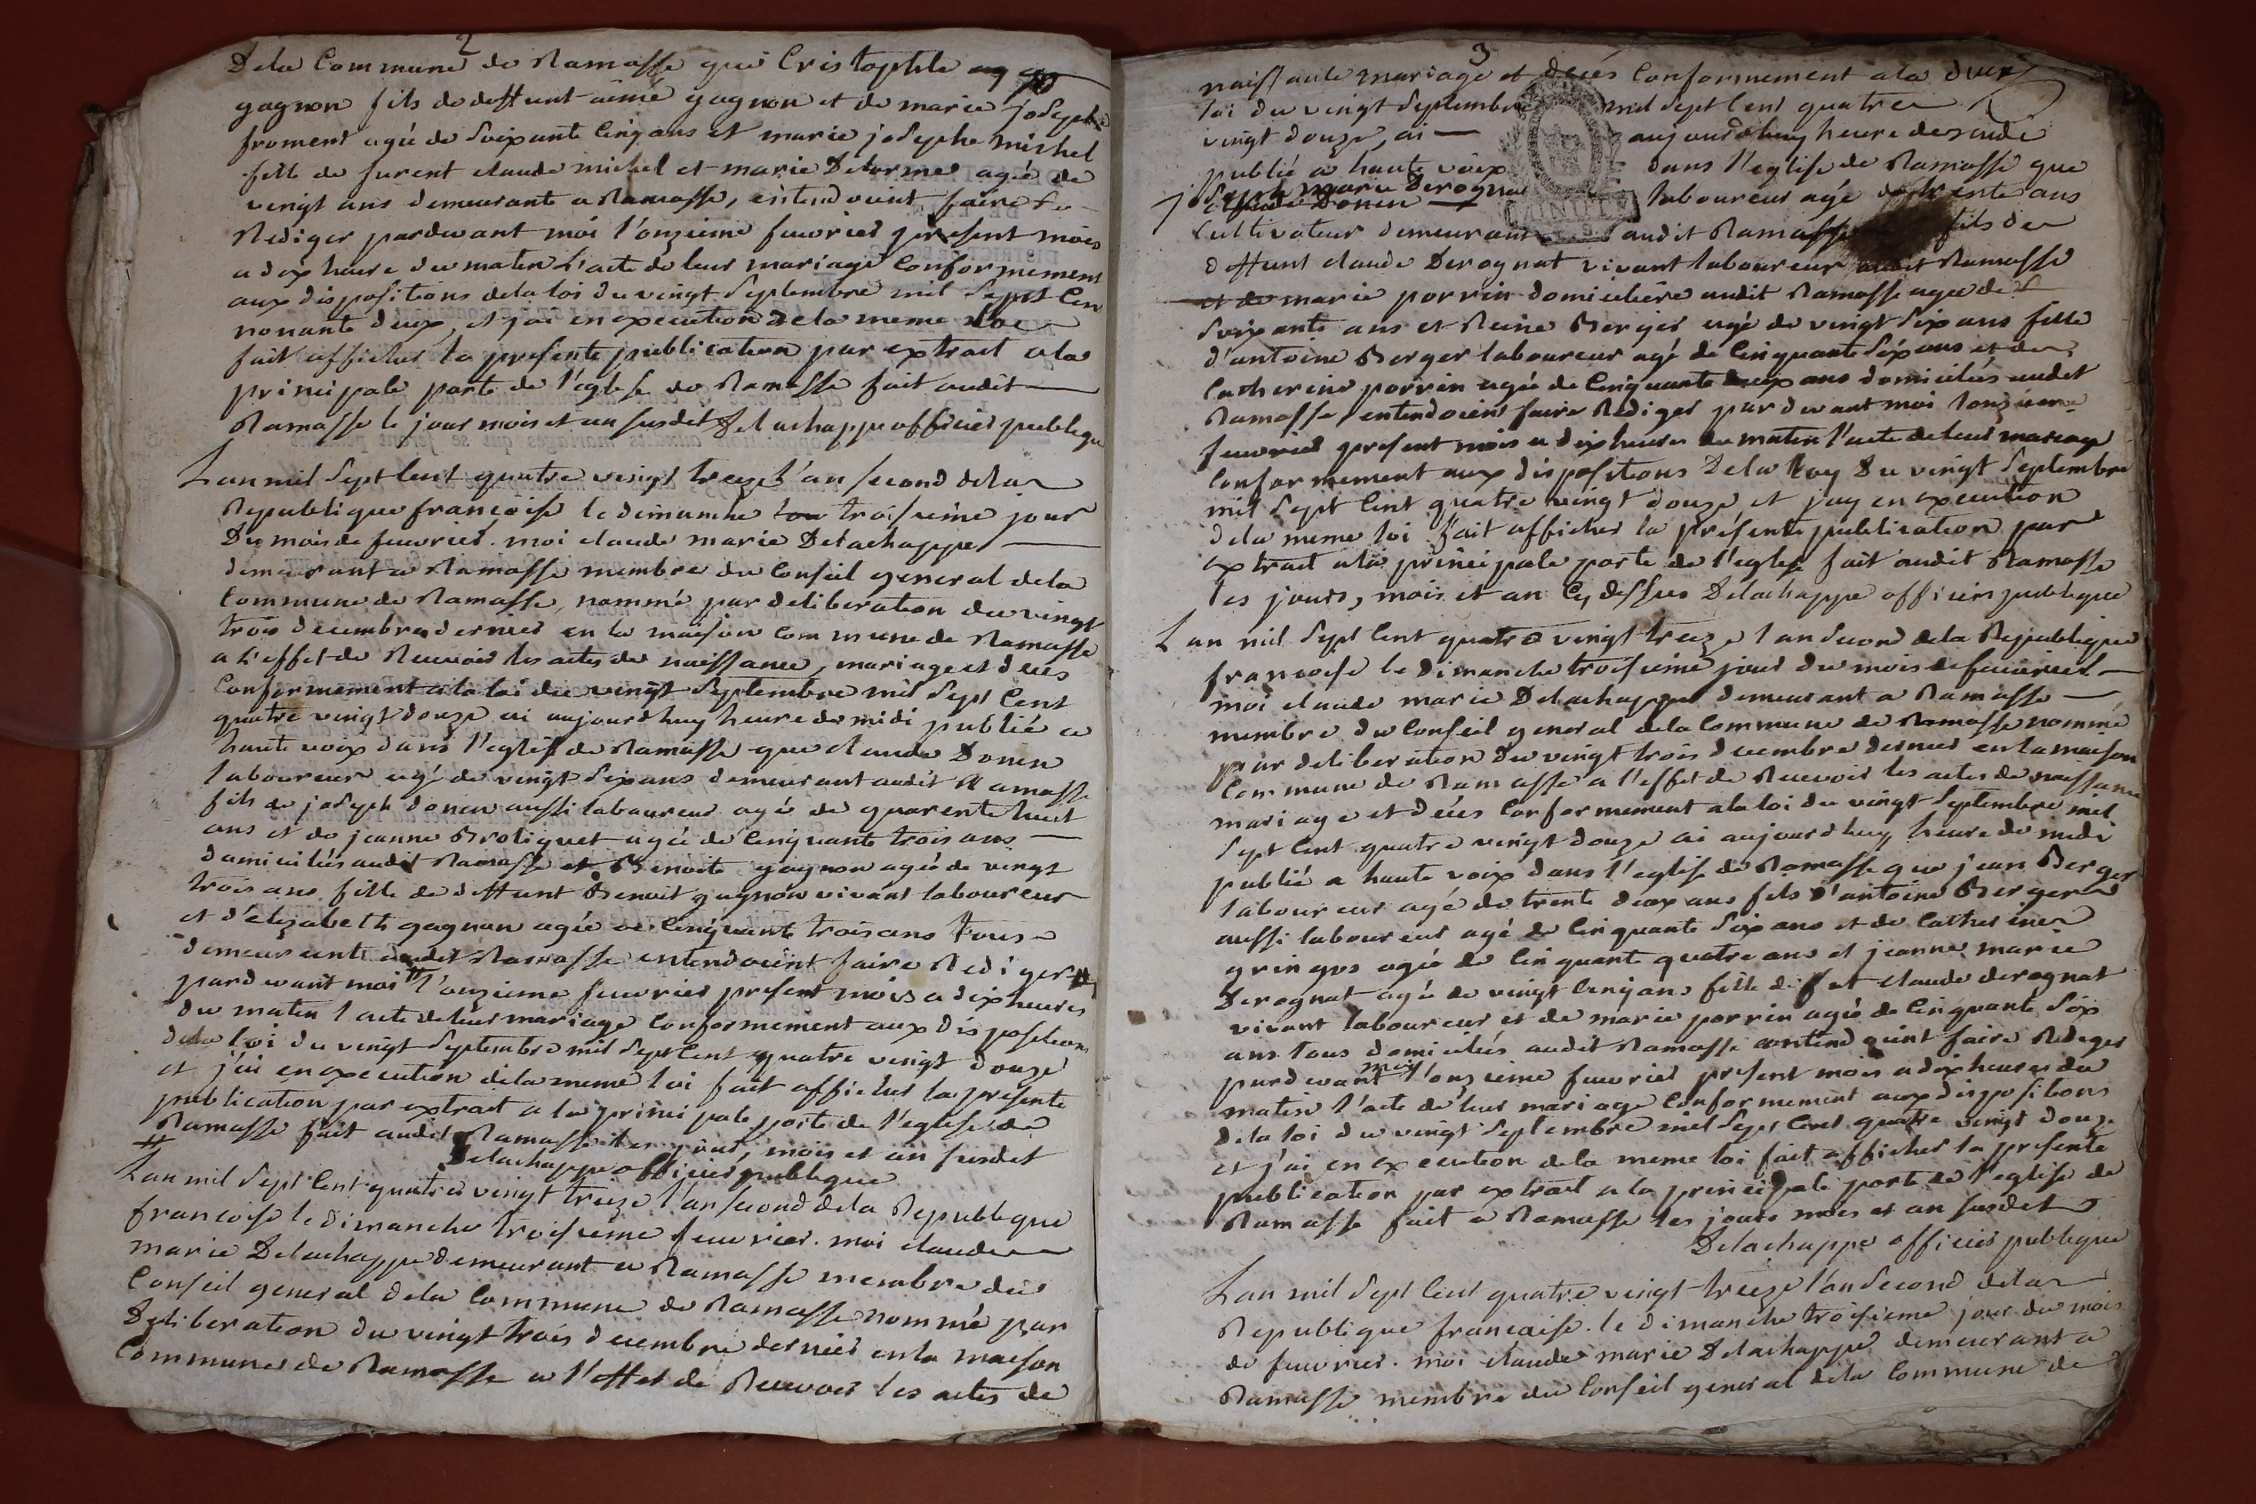 2
De la Commune de Ramasse que Cristophle
gagnon fils de deffunt aimé gagnon et de marie joseph
froment agé de soixante cinq ans et marie josephe michel
fille de furent claude michel et marie Delorme agée de
vingt ans demeurante a Ramasse, entendoient faire
Rediger pardevant moi l'onzieme fevrier present mois
a dix heure du matin l'acte de leur mariage Conformement
aux dispositions de la loi du vingt Septembre mil Sept Cen
nonante deux, et j'ai en execution de la meme loi
fait afficher la presente publication par extrait a la
principale porte de l'eglise de Ramasse fait audit
Ramasse le jour mois et an susdet Delachappe officier publique
Lan mil Sept Cent quatre vingt treize l'an second de la
Republique francoise le dimanche troisieme jour
Du mois de fevrier. moi claude marie Delachappe
demeurant a Ramasse membre du Conseil general de la
Commune de Ramasse, nommé par deliberation du vingt
trois decembre dernier en la maison Commune de Ramasse
a l'effet de Recevoir les actes de naissance, mariage et deces
Conformement a la loi du vingt Septembre mil Sept Cent
quatre vingt douze ai aujourdhuy heure de midi publié a
haute voix dans l'eglise de Ramasse que claude Donin
laboureur agé de vingt six ans demeurant audit Ramasse
fils de joseph donin aussi laboureur agé de quarente huit
ans et de jeanne Broliquet agée de Cinquante trois ans
domiciliés audit Ramasse et Benoite gagnon agée de vingt
trois ans fille de deffunt Benoit gagnon vivant laboureur
et d'elizabeth gagnon agée de Cinquante trois ans tous
demeurants audit Ramasse entendoient faire Rediger
pardevant moi l'onzieme fevrier present mois a dix heures
du matin l'acte de leur mariage Conformement aux dispositions
de la loi du vingt Septembre mil Sept Cent quatre vingt douze
et j'ai en execution de la meme loi fait afficher la presente
publication par extrait a la principale porte de l'eglise de
Ramasse fait audit Ramasse les jour, mois et an susdet
Delachappe officier publique
Lan mil Sept Cent quatre vingt treize l'an second de la Republique
francoise le dimanche troisieme fevrier. moi claude
marie Delachappe demeurant a Ramasse membre du
Conseil general de la Commune de Ramasse nommé par
Deliberation du vingt trois decembre dernier en la maison
Commune de Ramasse a l'effet de Recevoir les actes de
3
naissance mariage et décés Conformement a la
loi du vingt Septembre mil Sept Cent quatre
vingt douze, ai aujourdhuy heure de midi
publié a haute voix dans l'eglise de Ramasse que
joseph marie Derognat laboureur agé de trente ans
claude Donin
Cultivateur demeurant audit Ramasse fils de
deffunt claude Derognat vivant laboureur audit Ramasse
et de marie porrin domiciliére audit Ramasse agée de
Soixante ans et Reine Berger agé de vingt six ans fille
d'antoine Berger laboureur agé de Cinquante six ans et de
Catherine porrin agée de Cinquante deux ans domiciliés audit
Ramasse, entendoient faire Rediger pardevant moi l'onzieme
fevrier present mois a dix heures du matin l'acte de leur mariage
Conformement aux dispositions De la loy Du vingt Septembre
mil Sept Cent quatre vingt douze et j'ay en execution
de la meme loi fait afficher la présente publication par
extrait a la principale porte de l'eglise fait audit Ramasse
les jours, mois et an Cy dessus Delachappe officier publique
Lan mil Sept Cent quatre vingt treize l'an Second de la Republique
francoise le dimanche troisieme jour du mois de fevrier
moi claude marie Delachappe demeurant a Ramasse
membre du Conseil general de la Commune de Ramasse nommé
par deliberation du vingt trois decembre dernier en la maison
Commune de Ramasse a l'effet de Recevoir les actes de naissance
mariage et décés Conformement a la loi du vingt Septembre mil
Sept Cent quatre vingt douze ai aujourdhuy heure de midi
publié a haute voix dans l'eglise de Ramasse que jean Berger
laboureur agé de trente deux ans fils d'antoine Berger
aussi laboureur agé de Cinquante Six ans et de Catherine
gringos agée de Cinquante quatre ans et jeanne marie
Derognat agé de vingt Cinq ans fille de claude derognat
vivant laboureur et de marie porrin agée de Cinquante Six
ans tous domiciliés audit Ramasse entendoient faire Rediger
pardevant moy l'onzieme fevrier present mois a dix heures du
matin l'acte de leur mariage Conformement aux dispositions
de la loi du vingt Septembre mil Sept Cent quatre vingt douze
et j'ai en execution de la meme loi fait afficher la presente
publication par extrait a la principale porte de l'eglise de
Ramasse fait a Ramasse les jours mois et an susdet
Delachappe officier publique
Lan mil Sept Cent quatre vingt treize l'an Second de la
Republique francaise. le dimanche troisieme jour du mois
de fevrier. moi claude marie Delachappe demeurant a
Ramasse membre du Conseil general de la Commune de